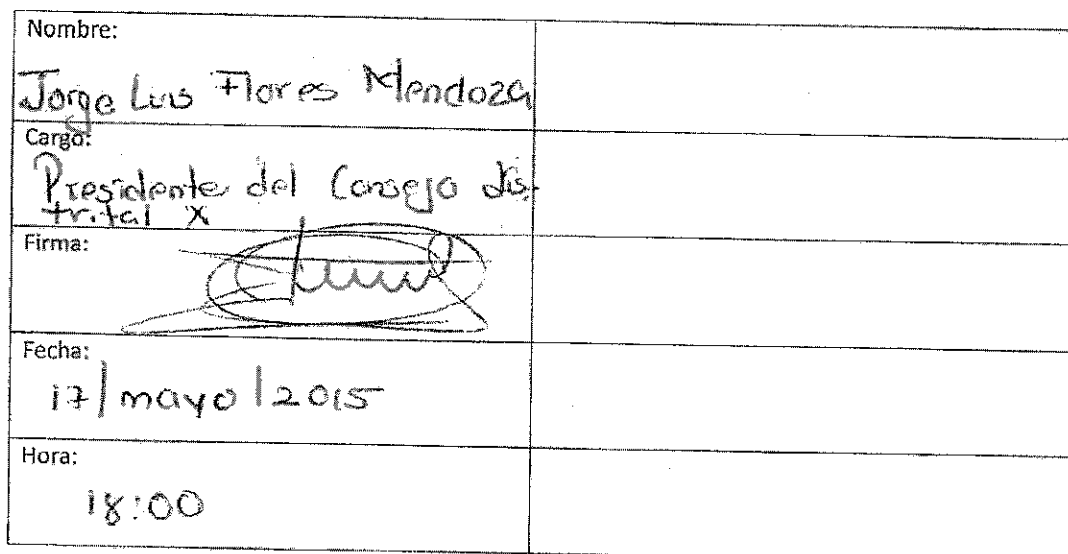 Nombre:
Jorge Luis Flores Mendoza
Cargo:
Presidente del Consejo Dis-
trital X
Firma:
Fecha:
17/mayo/2015
Hora:
18:00